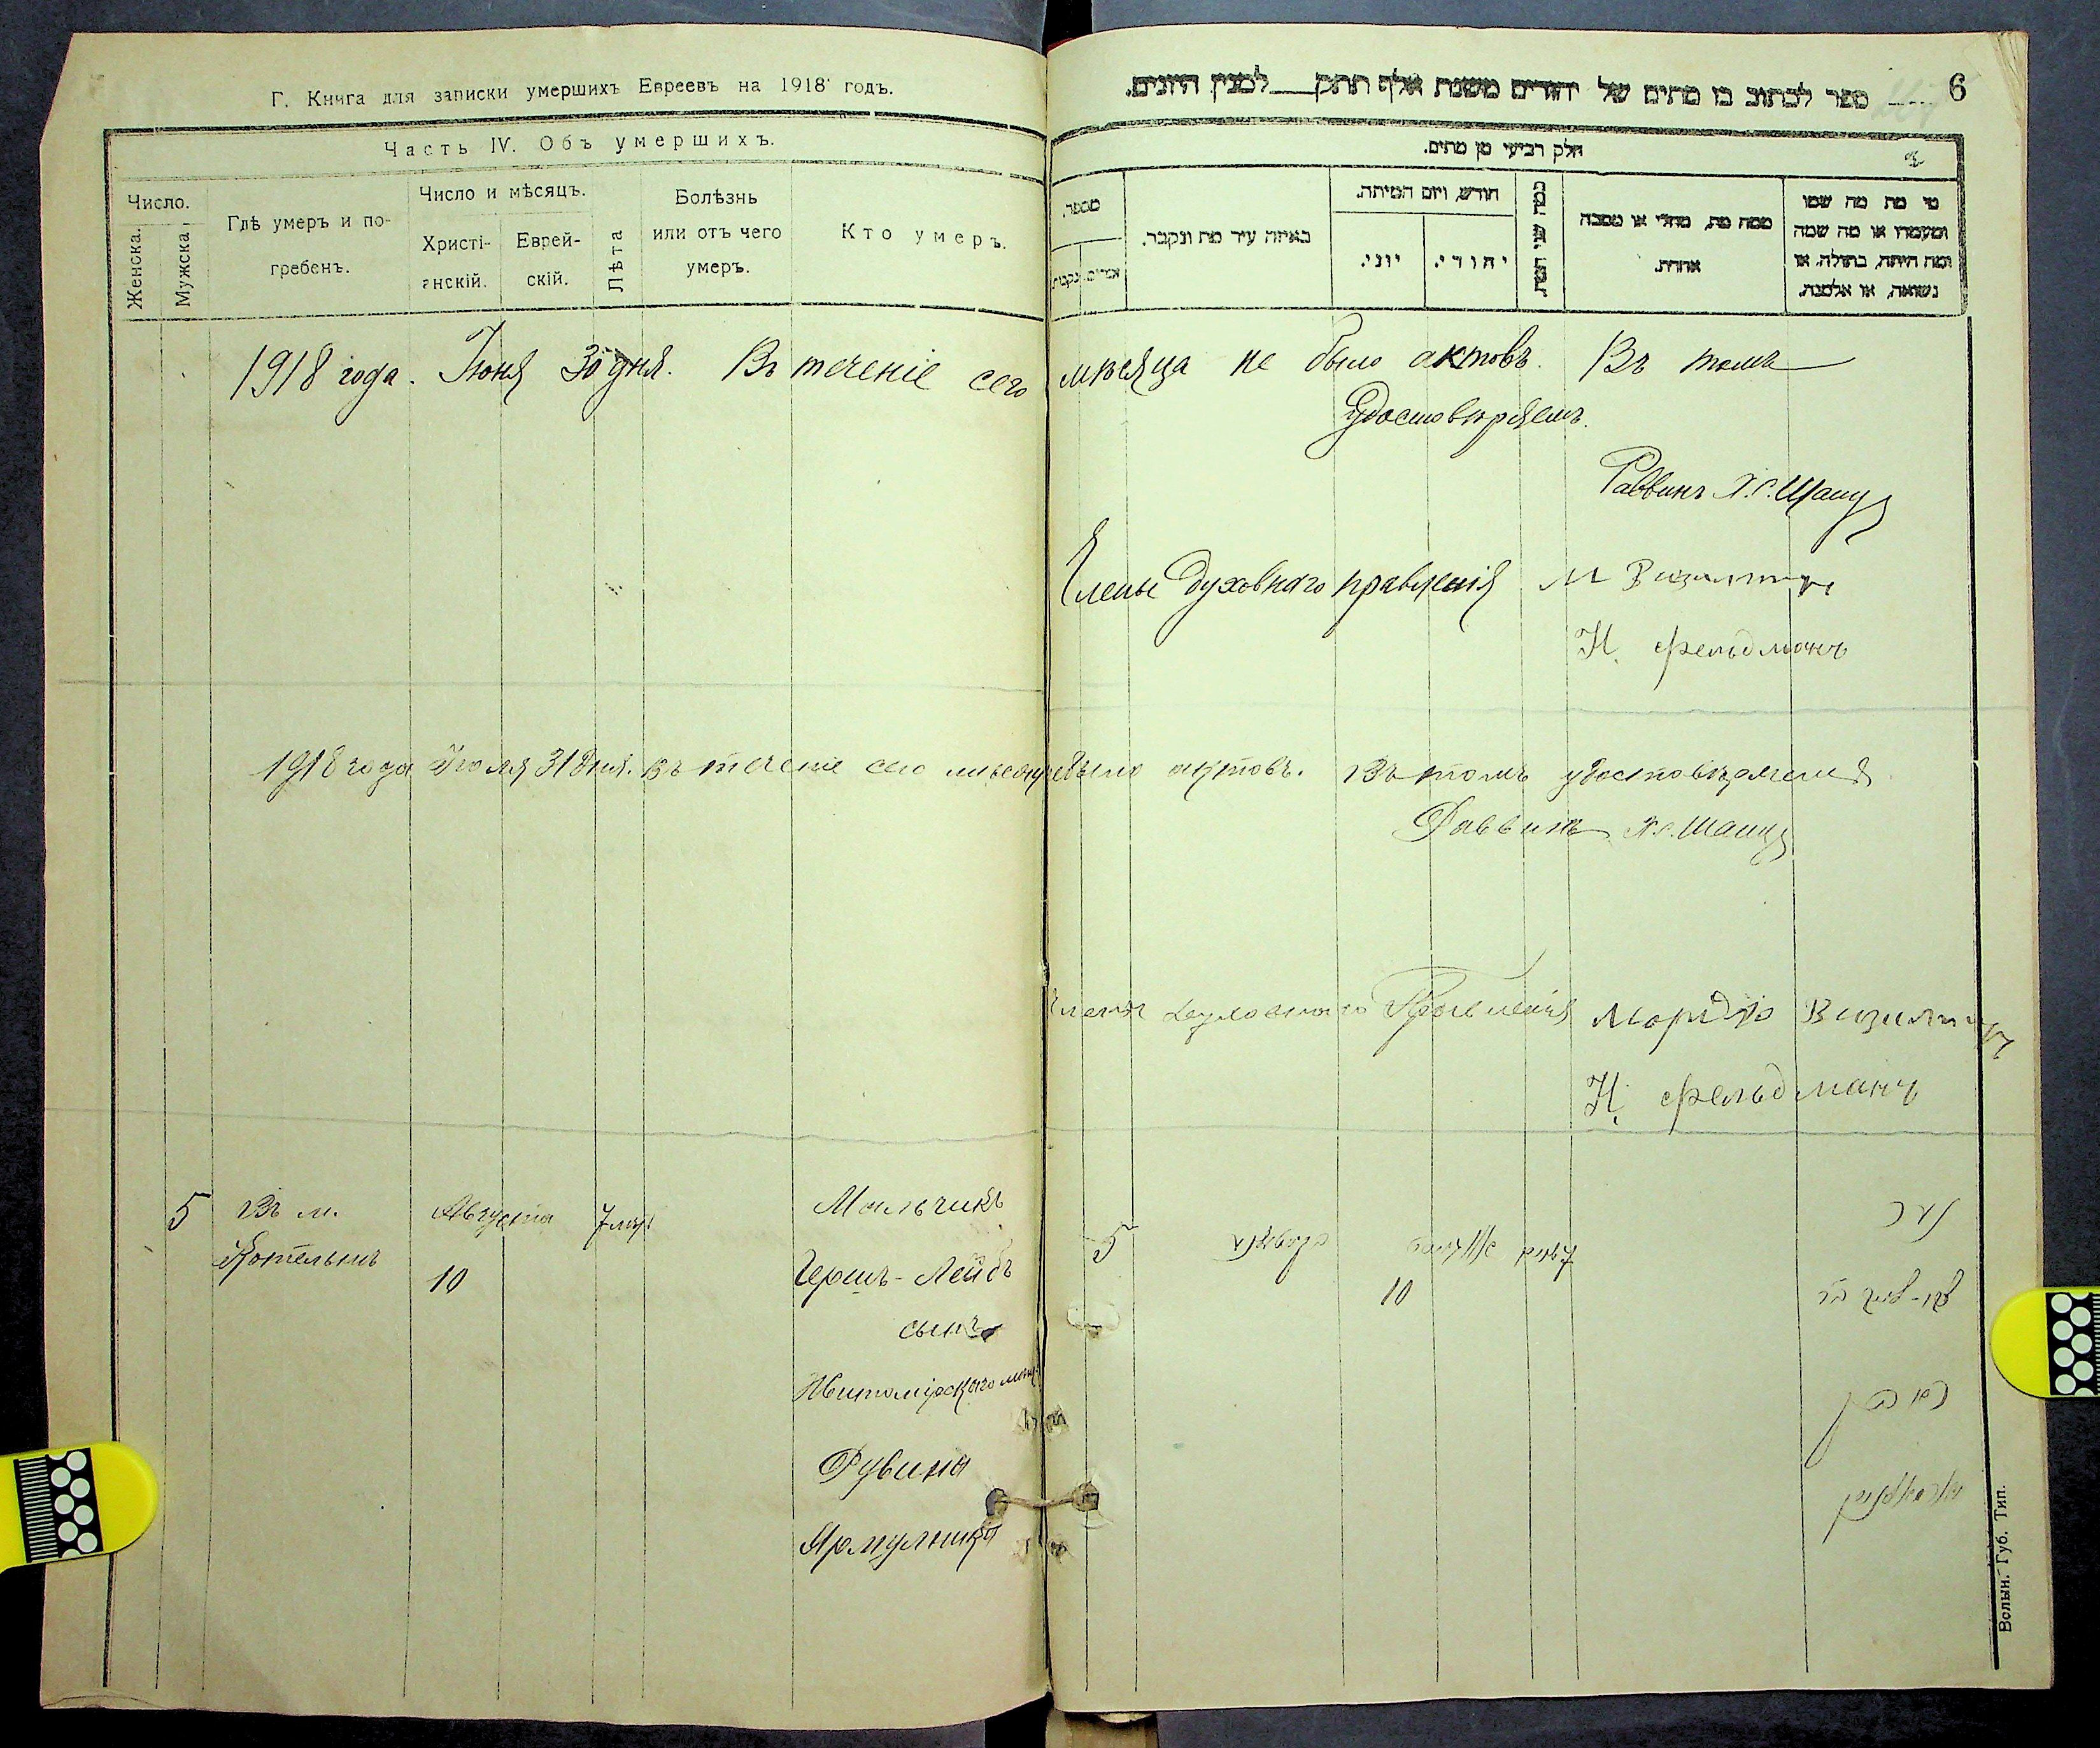 Г. Книга для записки умершихъ Евреевъ на 1918 годъ.
Часть IV. Объ умершихъ.
Число.
Женска.
Мужска
Гдѣ умеръ и по-
гребенъ.
Число и мѣсяцъ.
Христі-
анскій.
Еврей-
скій.
Лѣта
Болѣзнь
или отъ чего
умеръ.
Кто умеръ.
6
ספר לכתוב בו מתים של יהודים משנת אלף תתק למנין היונים.
חלק רביעי מן מתים.
מי מת מה שמו
ומעמדו או מה שמה
ומה היתה, בתולה, או
נשואה, או אלמנה.
ממה מת, מחלי או מסבה
אחרת.
כמה שני המת
חודש, ויום המיתה.
יהודי.
יוני.
באיזה עיר מת ונקבר.
מספר.
זכרים.
נקבות
1918 года. Іюня 30 дня. Въ теченіе сего мѣсяца не было актовъ. Въ томъ
Удостовѣряемъ.
Раввинъ Х.С. Шапиз
Члены Духовнаго правленія М
Н. Фельдманъ
1918 года Іюля 31 дня. Въ теченіе сего мѣсяца не было актовъ. Въ томъ
Раввинъ Х.С. Шапиз
Члены Духовнаго Правленія Мордко
Н. Фельдманъ
5
Въ м.
Котельнѣ
Августа
10
7 мѣс
Мальчикъ
Гершъ-Лейбъ
сынъ
Житомірскаго мѣщ.
Рувина
Ярмулника
5
10
ילד
ראובן
Волын. Губ. Тип.